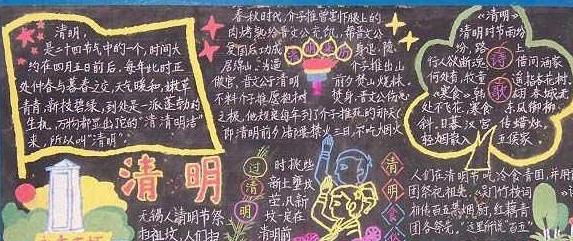 清明，
是二十四节气中的一个，时间大
约在四月五日前后，每年此时正
处仲春与暮春之交，天气暖和，嫩草
青青，新枝碧绿，到处是一派蓬勃的
生机，万物都显出沱的“清清明洁”
来，所以叫“清明”。
春秋时代，介子推曾割下腿上的
肉烤熟给晋文公充饥，帮晋文公
复国后功成身退，隐
居绵山。
介子推出山
做官，晋文公于清明前夕焚山烧林，
不料介子推愿抱树焚身，晋文公伤心
之极，他规定每年到了介子推死的那天（
即清明前夕）诸侯禁火三日，不吃烟火
《清明》
清明时节雨纷
纷，路上
行人欲断魂。借问酒家
何处有，牧童遥指杏花村。
《寒食》韩
春城无
处不飞花，寒食东风御柳
斜。日暮汉宫传蜡烛，
轻烟散入五侯家。
诗歌
清明
无锡人清明节祭
扫祖坟，人们扫
过清明
时挑些
新土壅坟
茔，凡新
坟一定在
清明前
清明食俗
人们在清明节吃冷食青团，并用
团祭祀祖先。《吴门竹枝词
相传百五禁烟厨，红藕青
团各祭先。”这里所说“百五”